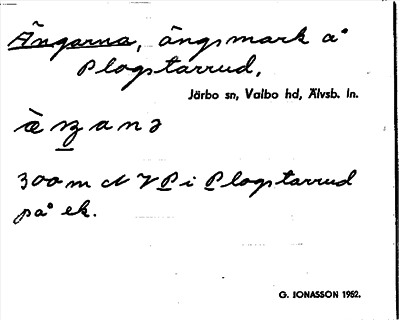 Ängarna, ängsmark å
Plogstarrud,
Järbo sn, Valbo hd, Älvsb. ln.
300 m N VP i Plogstarrud
på ek.
G. JONASSON 1962.